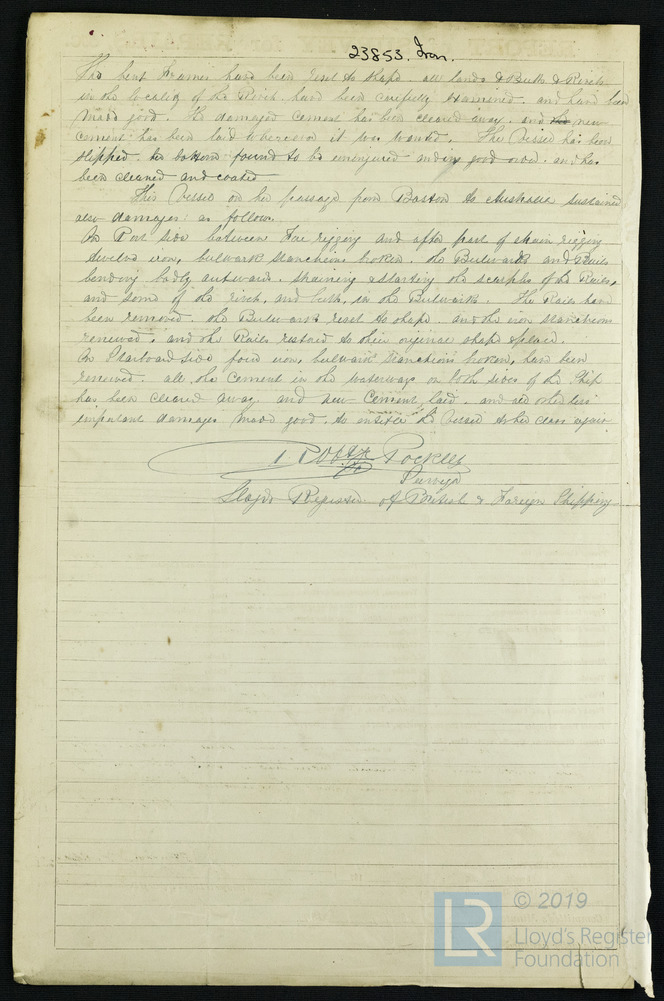 23853. Iron.
The bent Frames have been reset to shape. all lands & Butts & Rivets
in the locality of the Rivets have been carefully examined. and have been
made good. The damaged cement has been cleared away. and the new
cement has been laid wherever it was wanted. The Vessel has been
slipped. her bottom found to be uninjured and in good order. and has
been cleaned and coated
This Vessel on her passage from Boston to Australia sustained
also damages: as follows.
On Port side between Fore rigging and after part of Main rigging
twelve iron, bulwark stanchions broken. the Bulwarks and Rails
bending badly outwards. straining & starting the scarphs of the Rails,
and some of the rivets, and butts, in the Bulwarks. The Rails have
been removed. the Bulwarks reset to shape. and the iron stanchions
renewed. and the Rails restored to their original shape & place.
On Starboard side four iron, bulwark stanchions broken, have been
renewed. all the cement in the waterways on both sides of the Ship
has been cleared away and new cement, laid. and all other less
important damages made good. to entitle the Vessel to her class again
Robt Pockley
Surveyor
Lloyds Register of British & Foreign Shipping
© 2019
LR
Lloyd's Register
Foundation